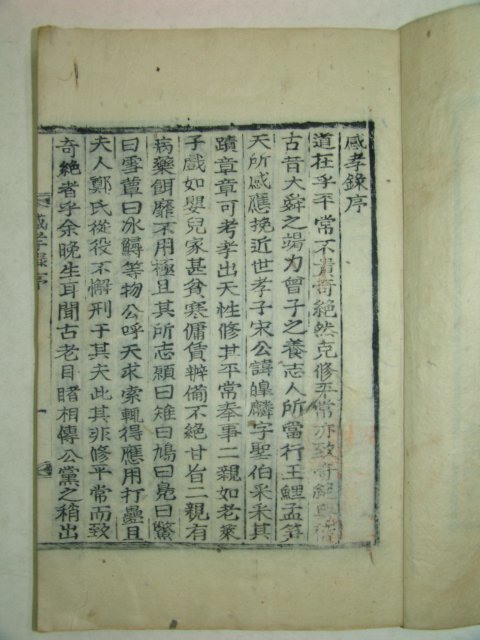 感孝錄序
道在乎平常不貴奇絕然克修平常亦致奇絕
古昔大舜之竭力曾子之養志人所當行王鯉孟笋
天所感應挽近世孝子宋公諱煌麟字聖伯采采其
蹟章章可考孝出天性修其平常奉事二親如老萊
子戲如嬰兒家甚貧寒傭賃辦備不絕甘旨二親有
病藥餌靡不用極且其所志願曰雉曰鳩曰鳧曰鱉
曰雪蕈曰氷鱘等物公呼天求索輒得應用打疊且
夫人鄭氏從役不懈刑于其夫此其非修平常而致
奇絕者乎余晚生耳聞古老目睹相傳公黨之稍出
感孝錄序
一